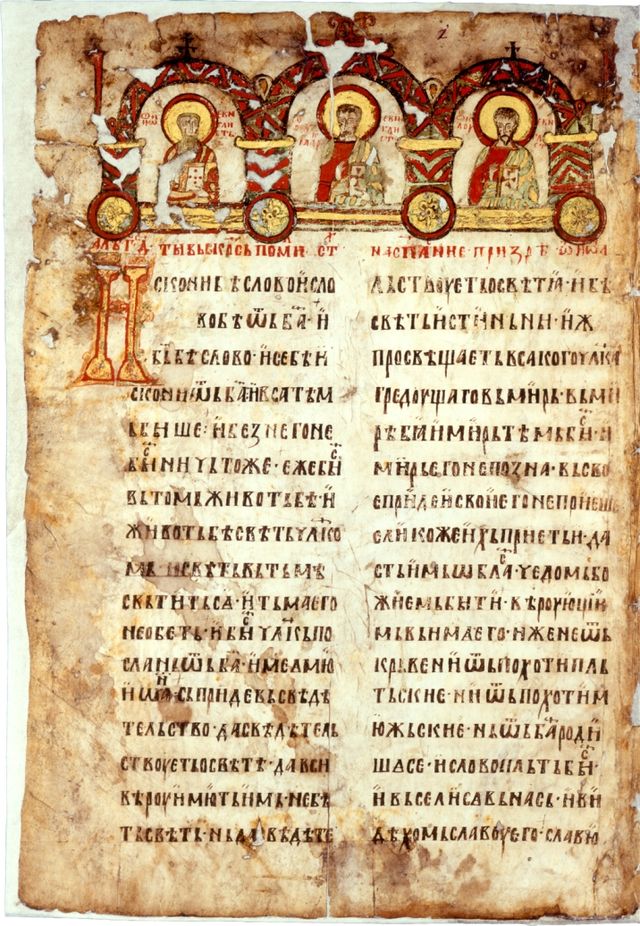 НАСПАНИЕ·ПРИЗРѢ
И
СКОНИБѢСЛОВОИСЛО
ВОБѢѾБА·И
БЪБѢСЛОВО·ИСЕБѢИ
СКОНИѾБА·ИВСАТѢМ
ЬБЫШЕ·ИБЕЗНЕГОНЕ
БЫНИЧЬТОЖЕ·ЕЖЕБЫ
ВЬТОМЬЖИВОТЬБѢ·И
ЖИВОТЬБѢСВѢТЬЧЛКО
МЬ·ИСВѢТЬВЬТЬМѢ
СВЬТИТЬСА·ИТЬМАЕГО
НЕОБЕТЬ·ИБЫЧЛКЬПО
СЛАНЬѾБА·ИМЕЛМЮ
ИѠА·СЬПРИДЕВЬСВѢДѢ
ТЕЛЬСТВО·ДАСВѢДѢТЕЛЬ
СТВОУЕТЬОСВѢТѢ·ДАВСИ
ВѢРОУИМЮТЬИМЬ·НЕБѢ
ТЬСВѢТЬ·НЬДАСВѢДѢТЕ
ЛЬСТВОУЕТЬОСВѢТѢ·ИБѢ
СВѢТЬИСТИНЬНИ·ИЖ
ПРОСВѢЩАЕТЬВСАКОГОЧЛКА
ГРЕДОУЩАГОВЬМИРЬ·ВЬМИ
РѢБѢИМИРЬТѢМЬБЫ·И
МИРЬЕГОНЕПОЗНА·ВЬСВО
ЕПРИДЕИСВОИЕГОНЕПОНЕШЕ
ЕЛИКОЖЕИХЬПРИЕТЬИ·ДА
СТЬИМЬѠБЛА·ЧЕДОМЬБО
ЖИЕМЬБЫТИ·ВѢРОУЮЩИИ
МЬВЬИМАЕГО·ИЖЕНЕѾ
КРЬВЕНИѾПОХОТИПЛЬ
ТЬСКИЕ·НИѾПОХОТИМ
ЮЖЬСКИЕ·НЬѾБАРОДИ
ШАСЕ·ИСЛОВОПЛЬТЬБЫ·
ИВЬСЕЛИСАВЬНАСЬ·ИВИ
ДѢХОМЬСЛАВОУЕГО·СЛАВЮ